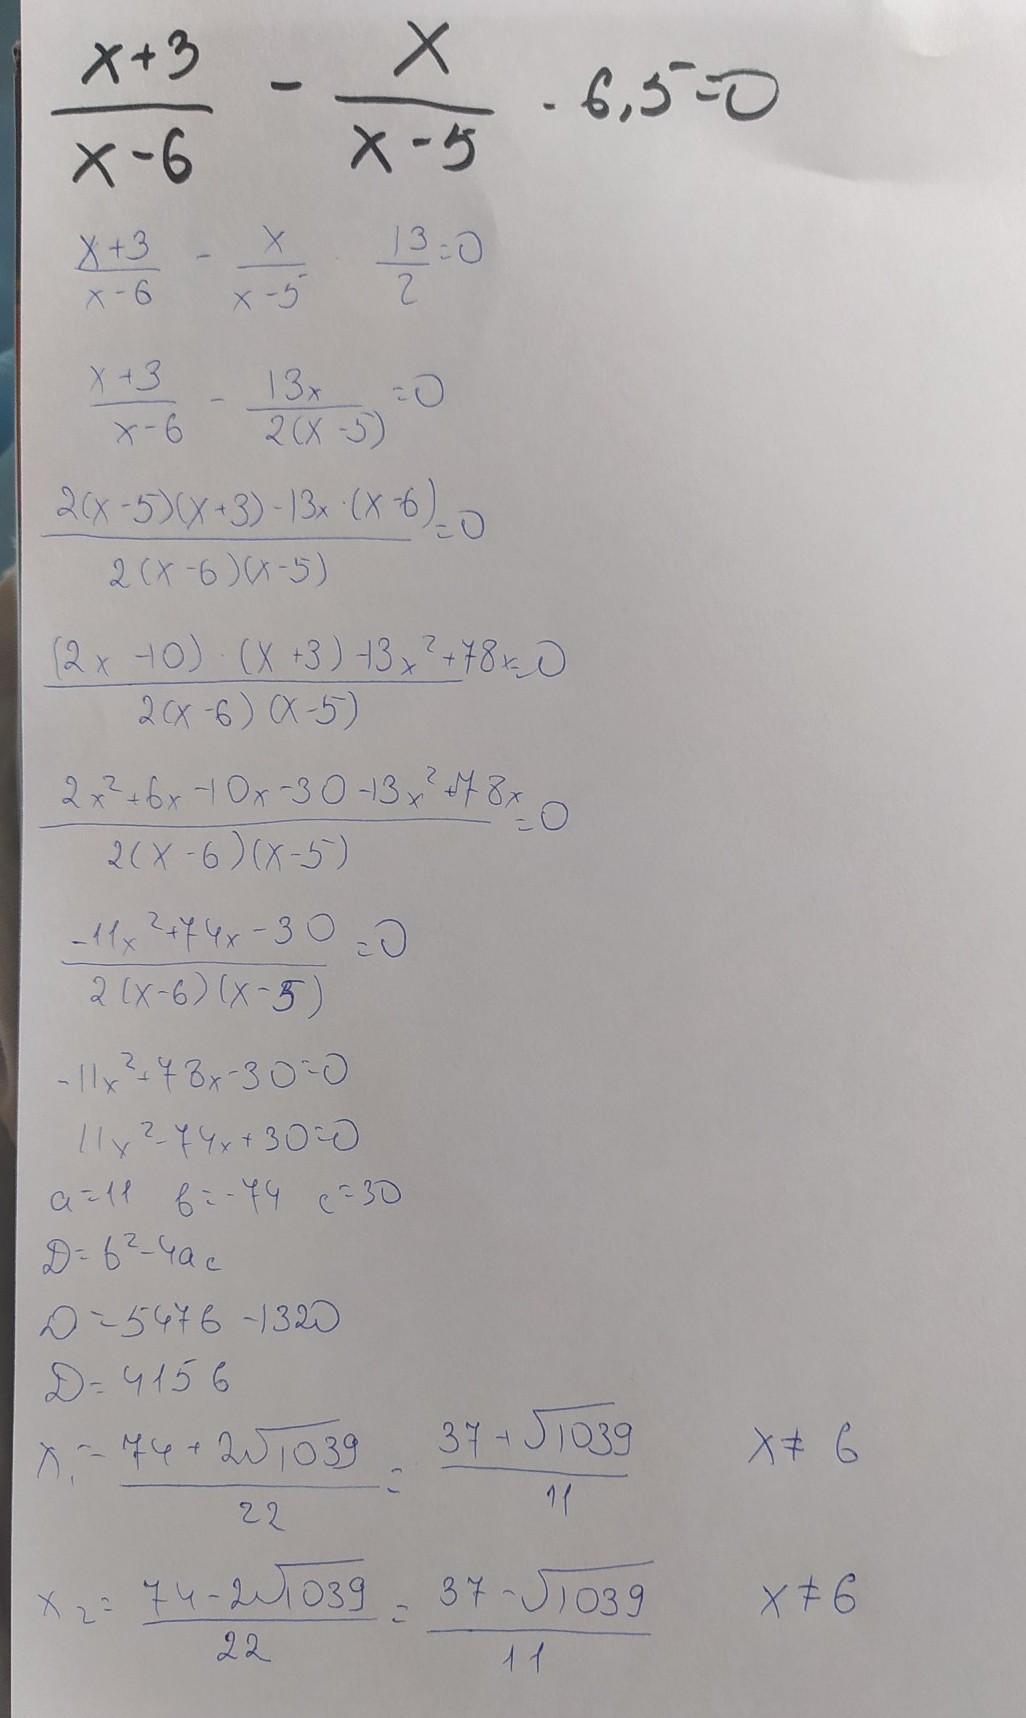 (x+3)/(x-6) - x/(x-5) · 6,5=0
(x+3)/(x-6) - x/(x-5) · 13/2=0
(x+3)/(x-6) - 13x/(2(x-5))=0
(2(x-5)(x+3)-13x·(x-6))/(2(x-6)(x-5))=0
((2x-10)·(x+3)-13x²+78x)/(2(x-6)(x-5))=0
(2x²+6x-10x-30-13x²+78x)/(2(x-6)(x-5))=0
(-11x²+74x-30)/(2(x-6)(x-5))=0
-11x²+78x-30=0
11x²-74x+30=0
a=11 b=-74 c=30
D=b²-4ac
D=5476-1320
D=4156
x₁=(74+2√1039)/22=(37+√1039)/11 x≠6
x₂=(74-2√1039)/22=(37-√1039)/11 x≠6